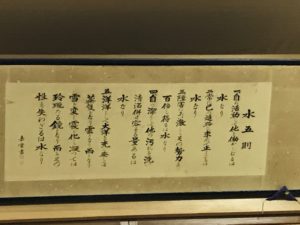 水五則
一自ら活動して他を働かしむるは
水なり
二常に己の進路を求めて止まざるは
水なり
三障害にあい激しくその勢力を
百倍し得るは水なり
四自ら潔うして他の汚れを洗い
清濁併せ容るる量あるは
水なり
五洋々として大洋を充たし
蒸気となり雲となり雨となり
雪と変じ霰と化し凝っては
玲瓏たる鏡となり而も其の
性を失わざるは水なり